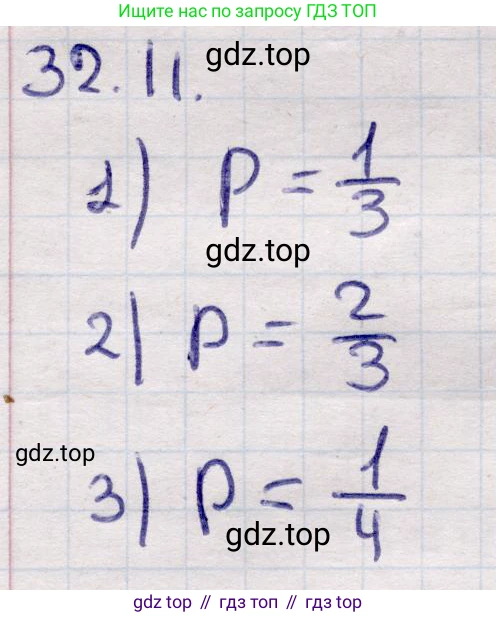 Ищите нас по запросу ГДЗ ТОП
32.11.
gdz.top
1) P = 1/3
gdz.top
2) P = 2/3
gdz.top
3) P = 1/4
gdz.top
gdz top // гдз топ // гдз top